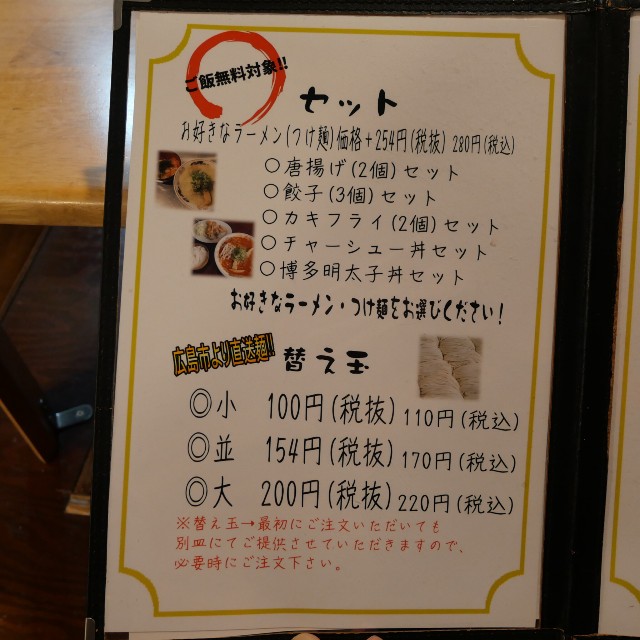 ご飯無料対象!!
セット
お好きなラーメン(つけ麺)価格+254円(税抜) 280円(税込)
○唐揚げ(2個)セット
○餃子(3個)セット
○カキフライ(2個)セット
○チャーシュー丼セット
○博多明太子丼セット
お好きなラーメン・つけ麺をお選びください!
広島市より直送麺!!
替え玉
◎小 100円(税抜) 110円(税込)
◎並 154円(税抜) 170円(税込)
◎大 200円(税抜) 220円(税込)
※替え玉→最初にご注文いただいても
別皿にてご提供させていただきますので、
必要時にご注文下さい。